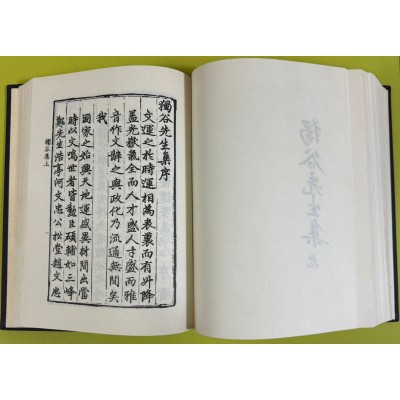 獨谷先生集序
文運之扵時運相為表裏而有升降
盖光嶽氣全而人才盛人才盛而雅
音作文辭之與政化乃流通無間矣
我
國家之始與天地運盛異材間出當
時以文鳴世者皆勳臣碩輔如三峰
鄭先生浩亭河文忠公松堂趙文忠
獨谷集上
獨谷先生集